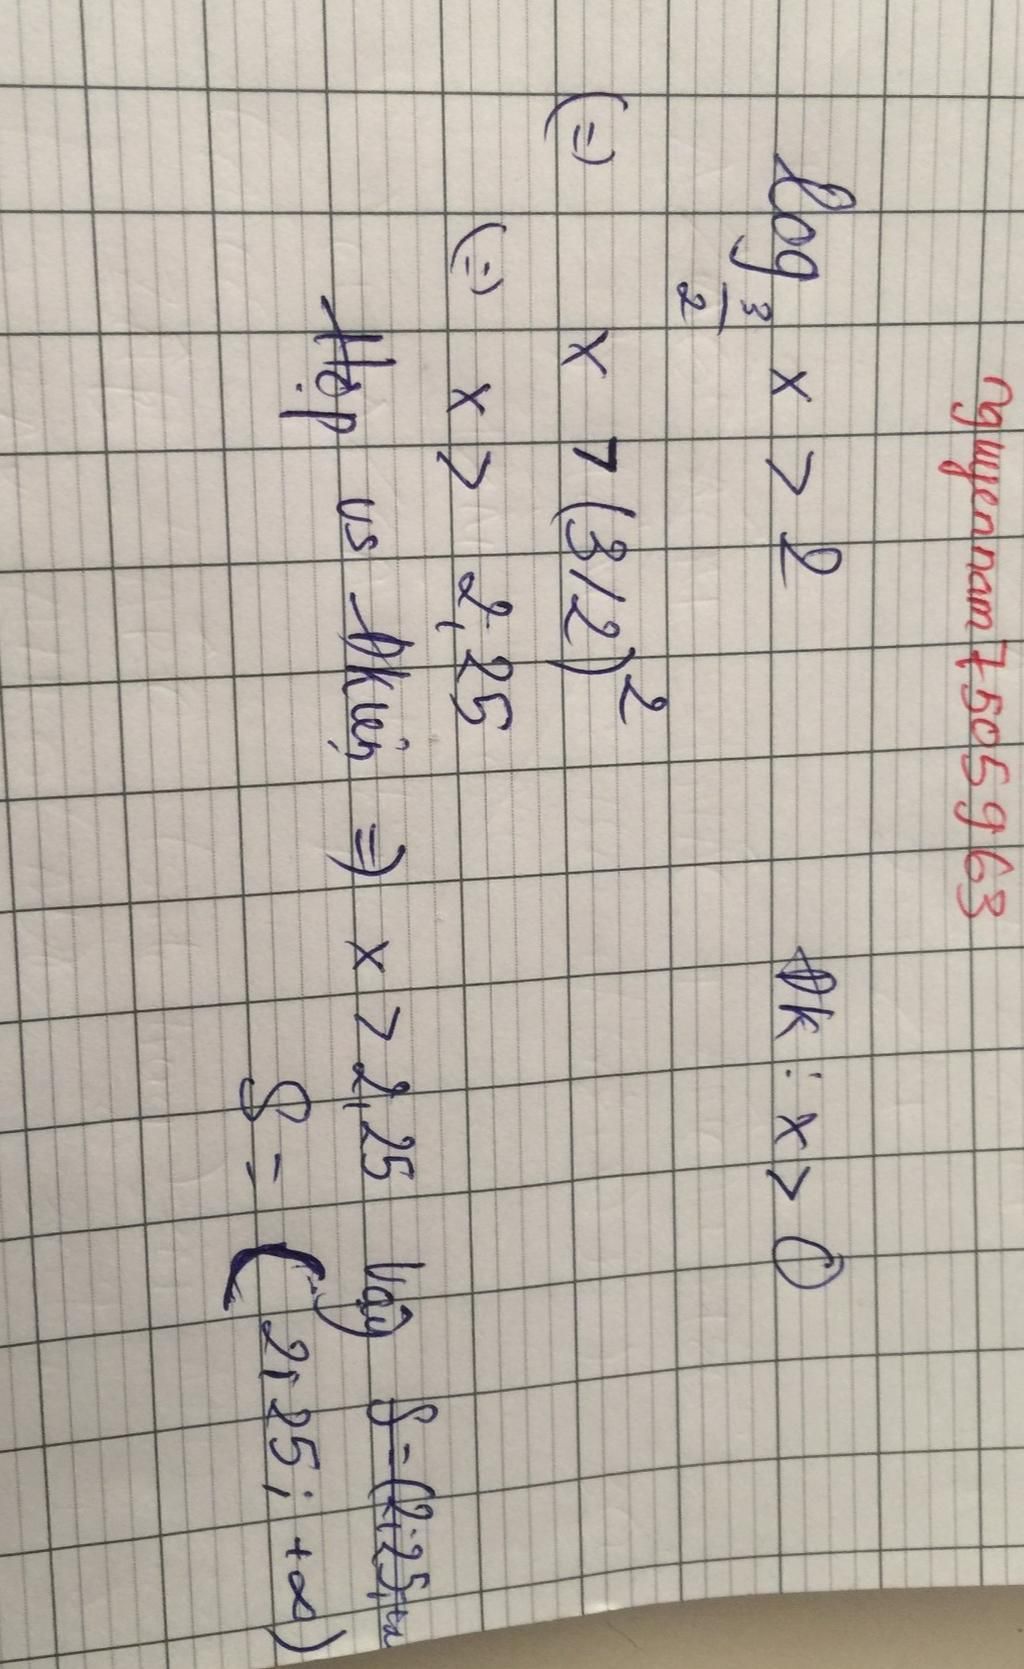 nguyennam7505963
log 3/2 x > 2 Đk : x > 0
(=) x > (3/2)²
(=) x > 2,25
Hợp vs Đkiện => x > 2,25 Vậy S = (2,25; +∞
S = (2,25; +∞)